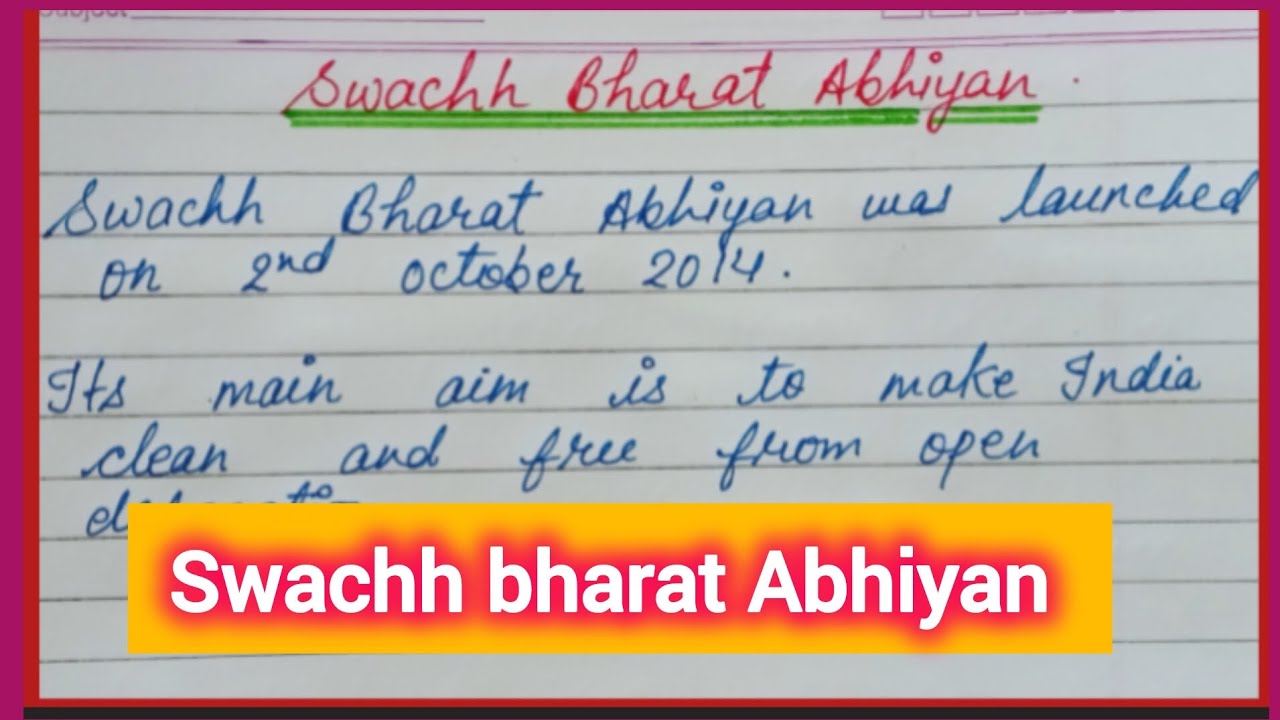 Subject
Swachh Bharat Abhiyan.
Swachh Bharat Abhiyan was launched
on 2nd october 2014.
Its main aim is to make India
clean and free from open
Swachh bharat Abhiyan